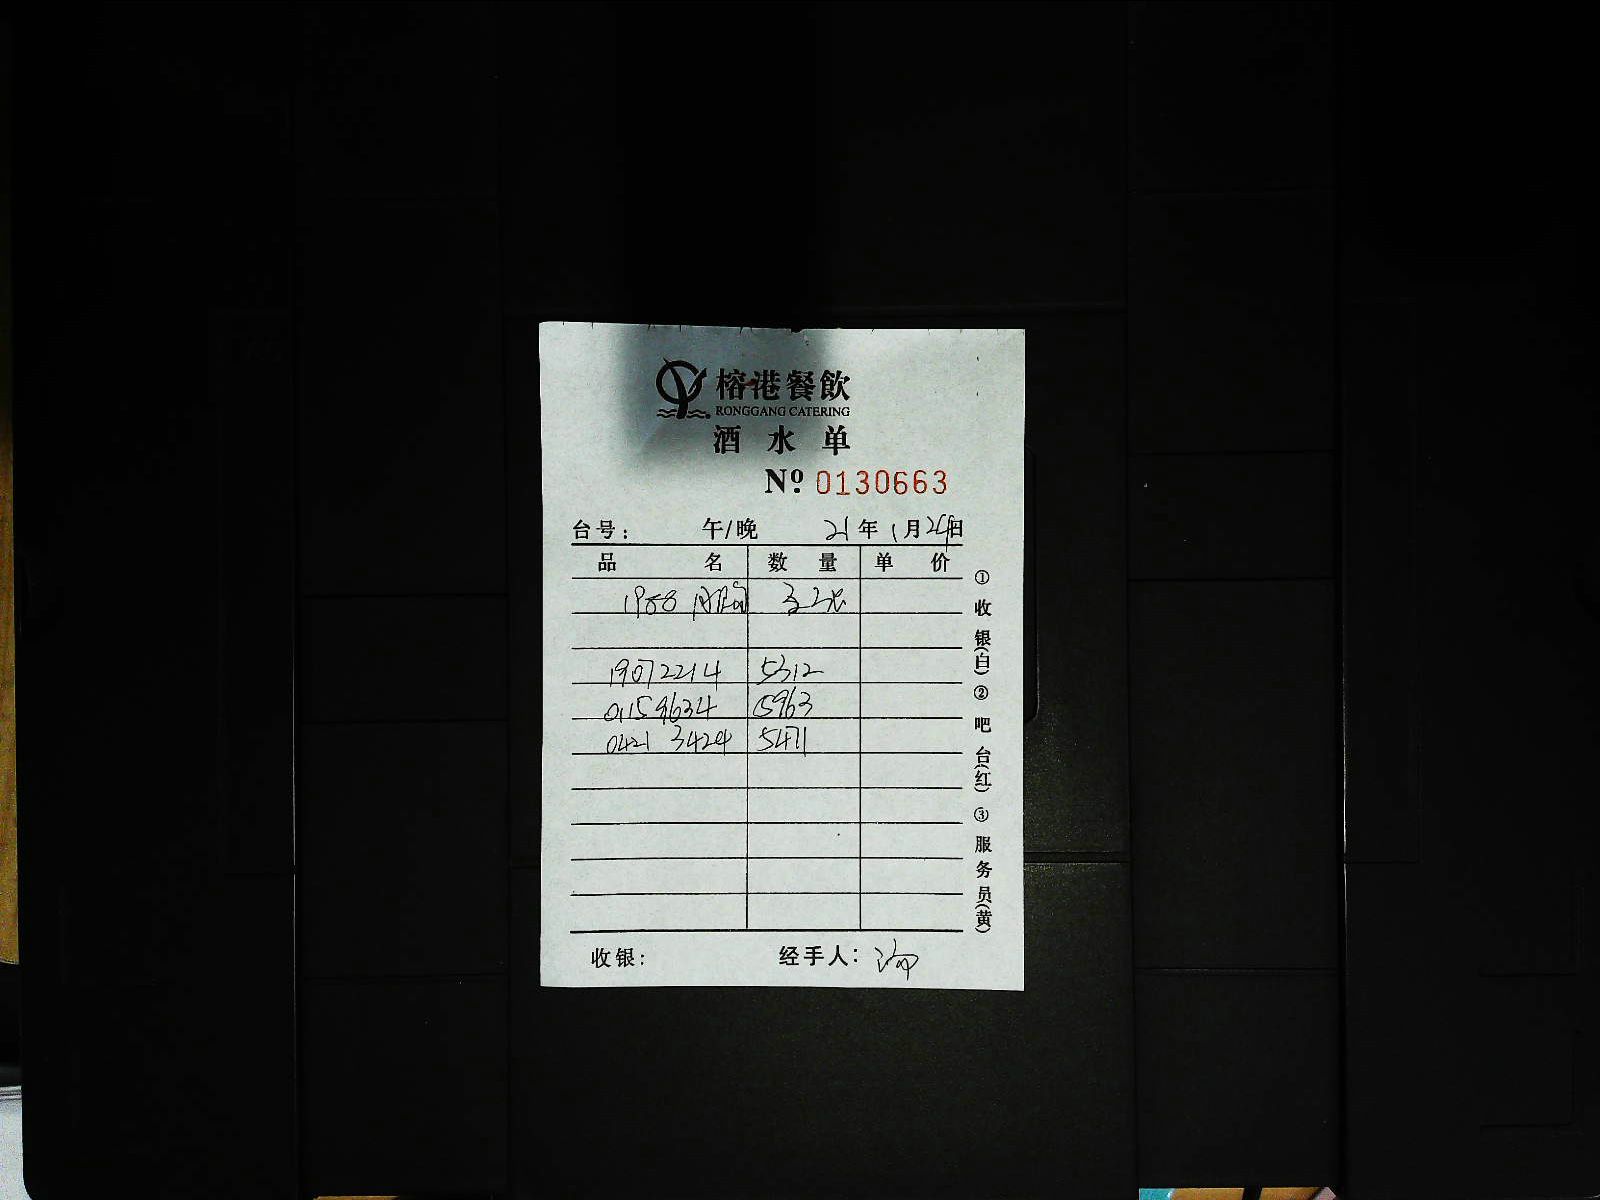 榕港餐飲
RONGGANG CATERING
酒水单
Nº 0130663
台号: 午/晚 21年1月 日
品名 数量 单价
1988
19072214 5312
01159634 5963
0421 3424 5471
收银: 经手人:
①收银(白) ②吧台(红) ③服务员(黄)